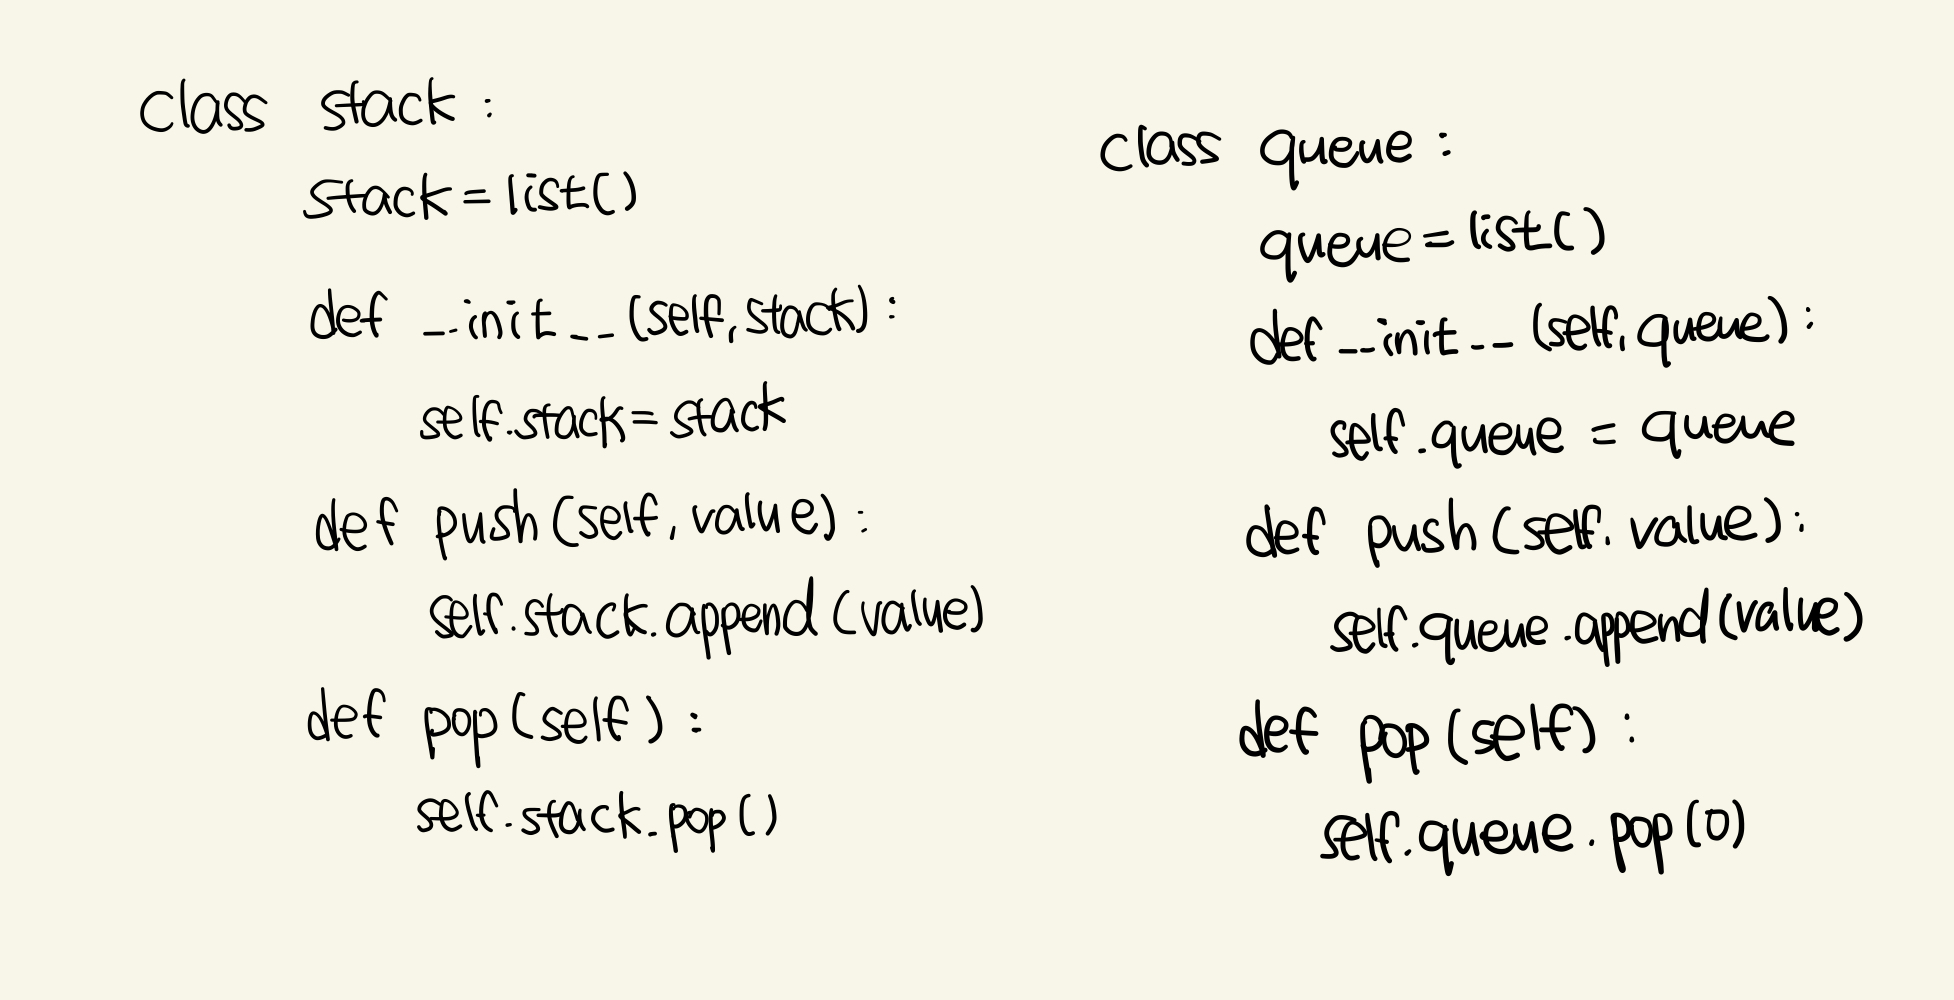 class stack :
stack = list()
def __init__(self, stack) :
self.stack = stack
def push(self, value) :
self.stack.append(value)
def pop(self) :
self.stack.pop()
class queue :
queue = list()
def __init__(self, queue) :
self.queue = queue
def push(self. value) :
self.queue.append(value)
def pop(self) :
self.queue.pop(0)